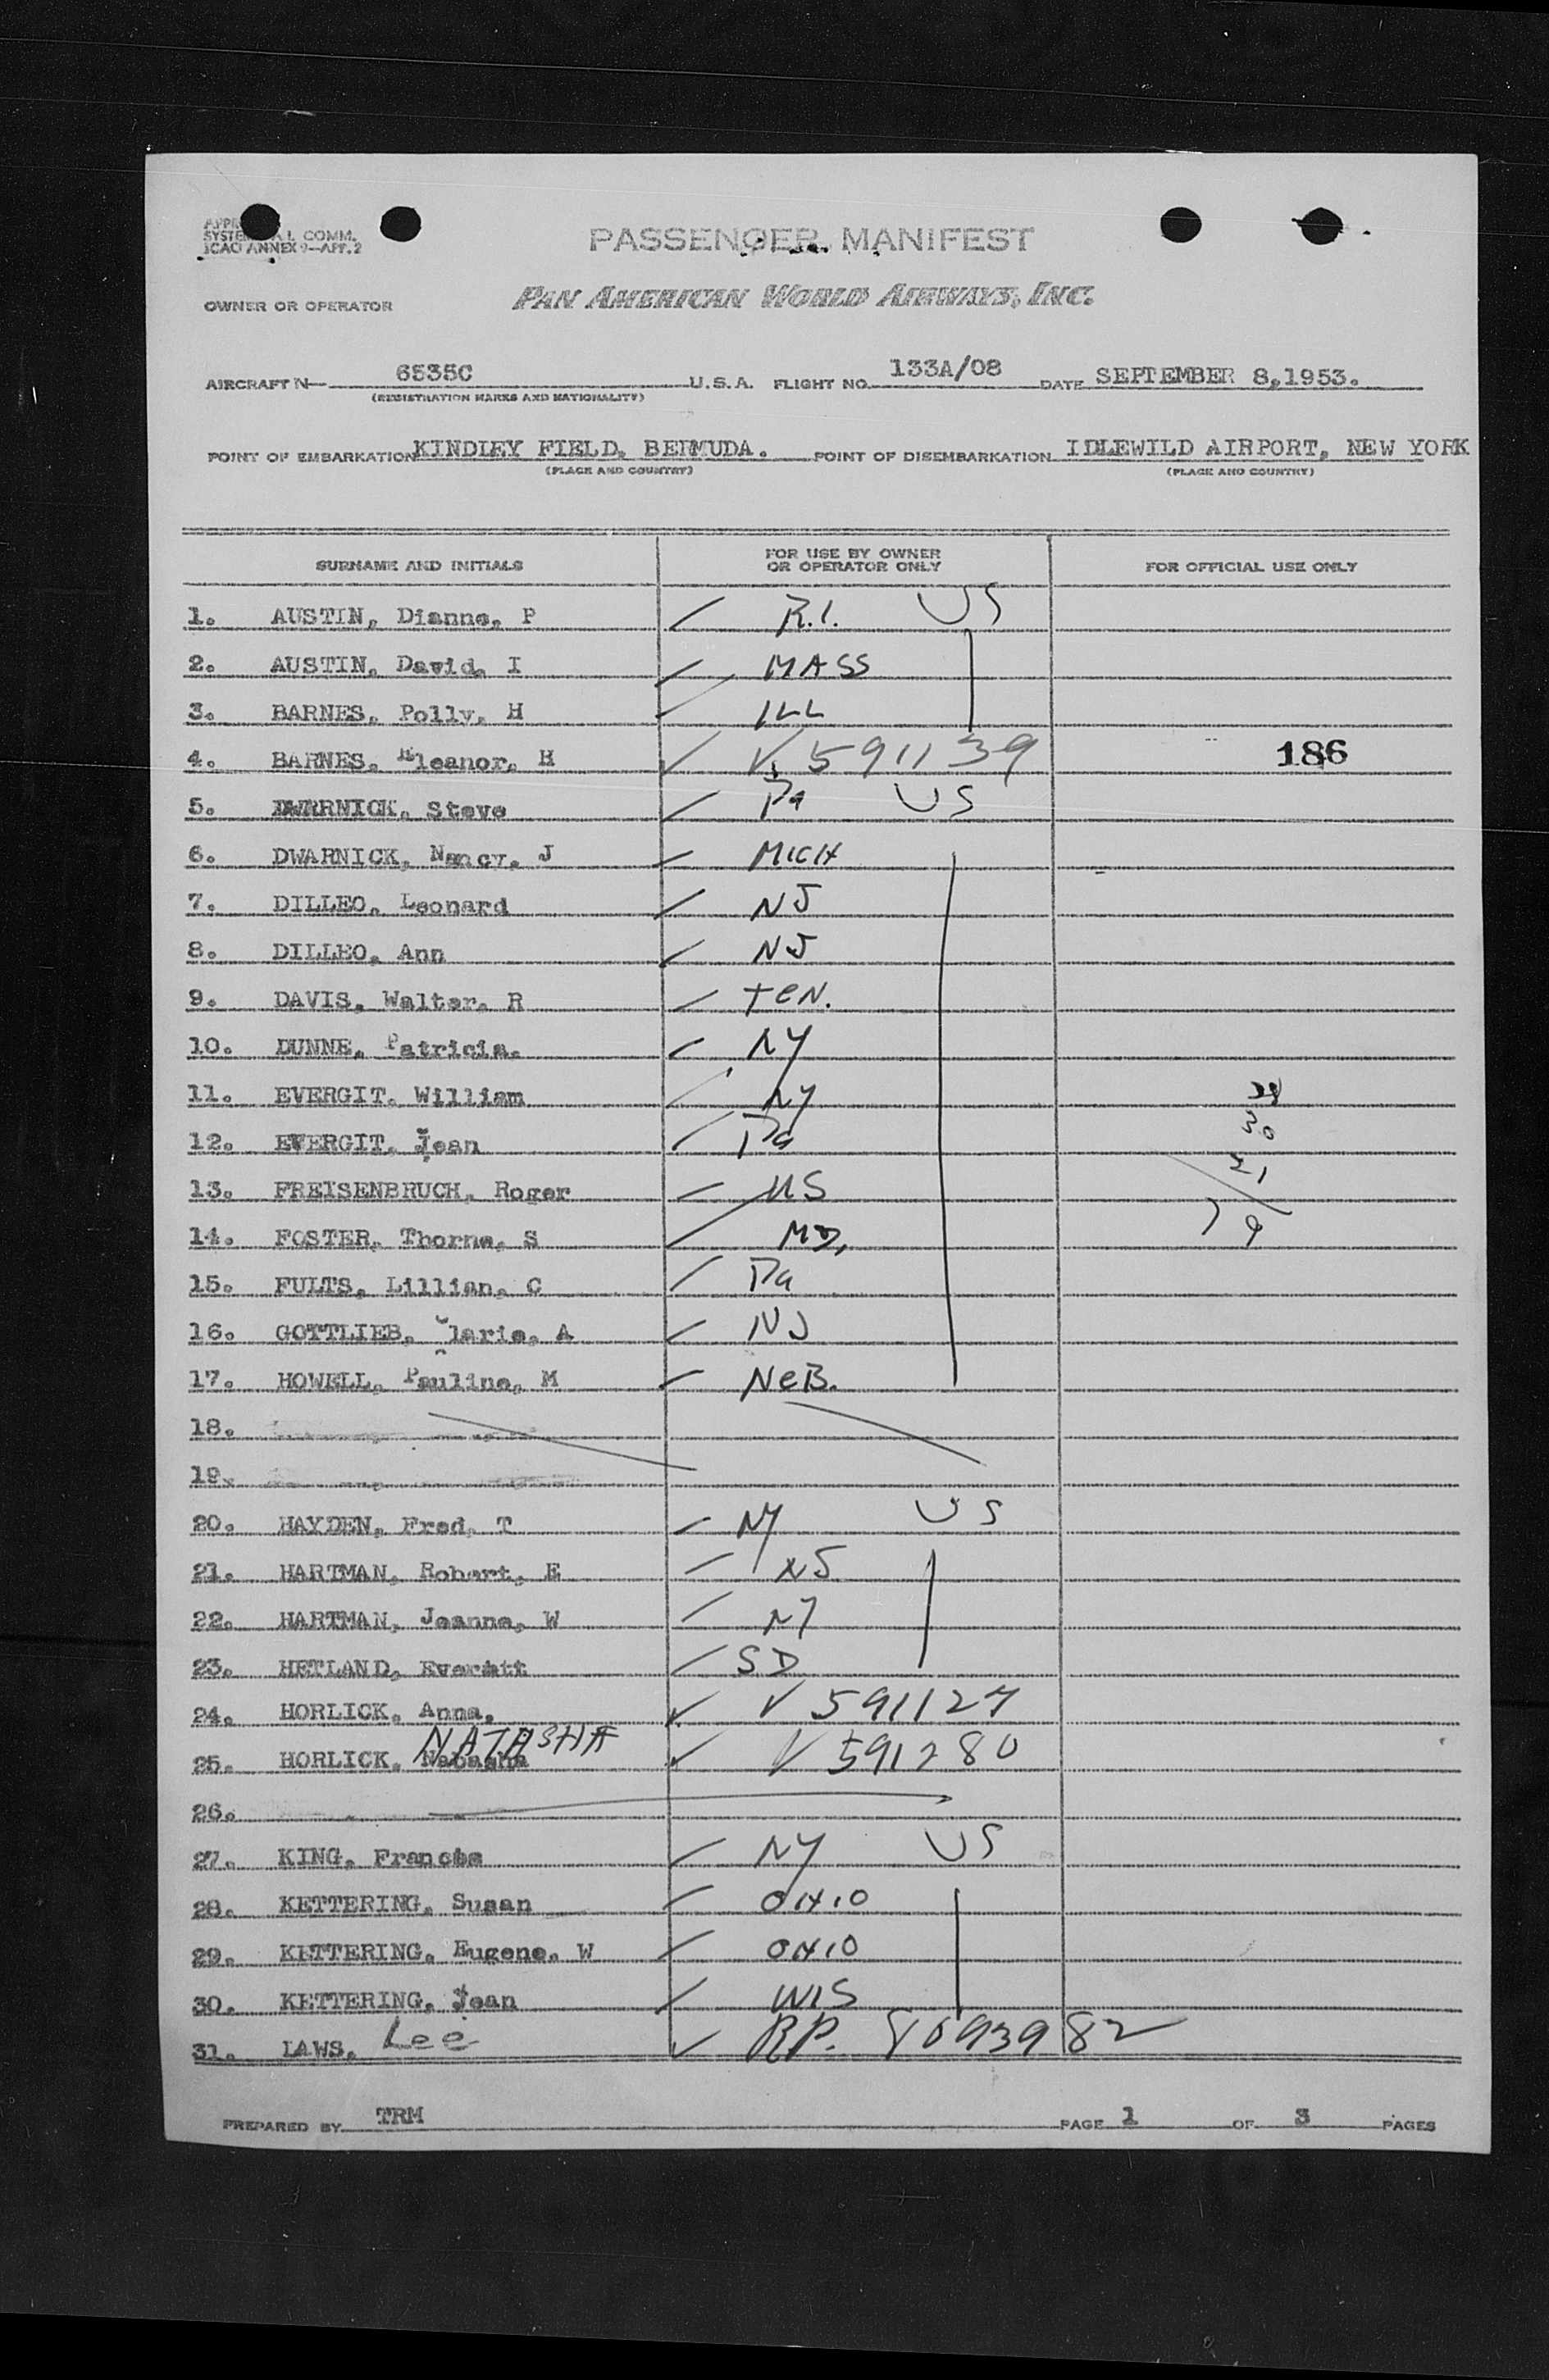 PASSENGER MANIFEST
SYSTEM A.I. COMM.
ICAO ANNEX 9—APP. 2
OWNER OR OPERATOR PAN AMERICAN WORLD AIRWAYS, INC.
AIRCRAFT N— 6535C U.S.A. FLIGHT NO. 133A/08 DATE SEPTEMBER 8,1953.
(REGISTRATION MARKS AND NATIONALITY)
POINT OF EMBARKATION KINDLEY FIELD, BERMUDA. POINT OF DISEMBARKATION IDLEWILD AIRPORT, NEW YORK
(PLACE AND COUNTRY) (PLACE AND COUNTRY)
SURNAME AND INITIALS FOR USE BY OWNER OR OPERATOR ONLY FOR OFFICIAL USE ONLY
1. AUSTIN, Dianne, P R.I. US
2. AUSTIN, David, I MASS
3. BARNES, Polly, H ILL
4. BARNES, Eleanor, H V 591139 186
5. DWARNICK, Steve Pa US
6. DWARNICK, Nancy, J MICH
7. DILLEO, Leonard NJ
8. DILLEO, Ann NJ
9. DAVIS, Walter, R TeN.
10. DUNNE, Patricia. NY
11. EVERGIT, William NY
12. EVERGIT, Jean Pa 30
13. FREISENBRUCH, Roger US 21
14. FOSTER, Thorne, S MD, 79
15. FULTS, Lillian, C Pa
16. GOTTLIEB, laris, A NJ
17. HOWELL, Pauline, M NeB.
18.
19.
20. HAYDEN, Fred, T NY US
21. HARTMAN, Robert, E NJ
22. HARTMAN, Jeanne, W NY
23. HETLAND, Everett SD
24. HORLICK, Anna, V 591127
NATASHA
25. HORLICK, Nabasha V 591280
26.
27. KING, Francis NY US
28. KETTERING, Susan OHIO
29. KETTERING, Eugene, W OHIO
30. KETTERING, Jean WIS
31. LAWS, Lee RP. 8093982
PREPARED BY TRM PAGE 1 OF 3 PAGES